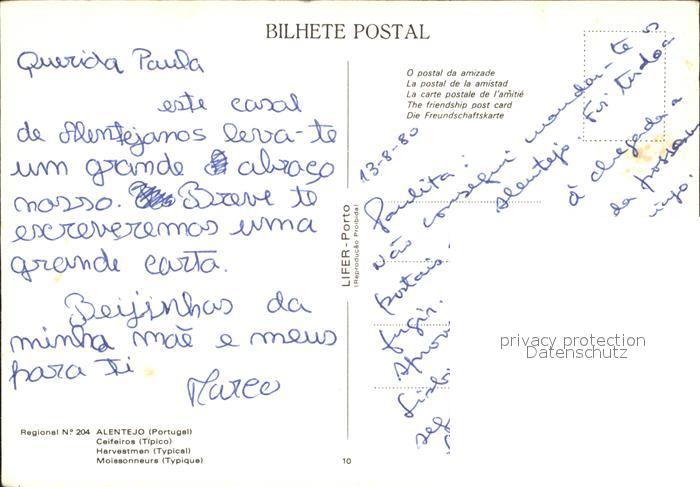 BILHETE POSTAL
Querida Paula
este casal
de Alentejanos leva-te
um grande abraço
nosso. Breve te
escreveremos uma
grande carta.
Beijinhas da
minha mãe e meus
para ti
Marco
Regional N.º 204 ALENTEJO (Portugal)
Ceifeiros (Típico)
Harvestmen (Typical)
Moissonneurs (Typique)
10
LIFER - Porto
(Reprodução Proibida)
O postal da amizade
La postal de la amistad
La carte postale de l'amitié
The friendship post card
Die Freundschaftskarte
13-8-80
Paulita:
Não consegui mandar-te os
postais
Alentejo
Foi tudo a
fugir.
à chegada a
da nossa
privacy protection
Datenschutz